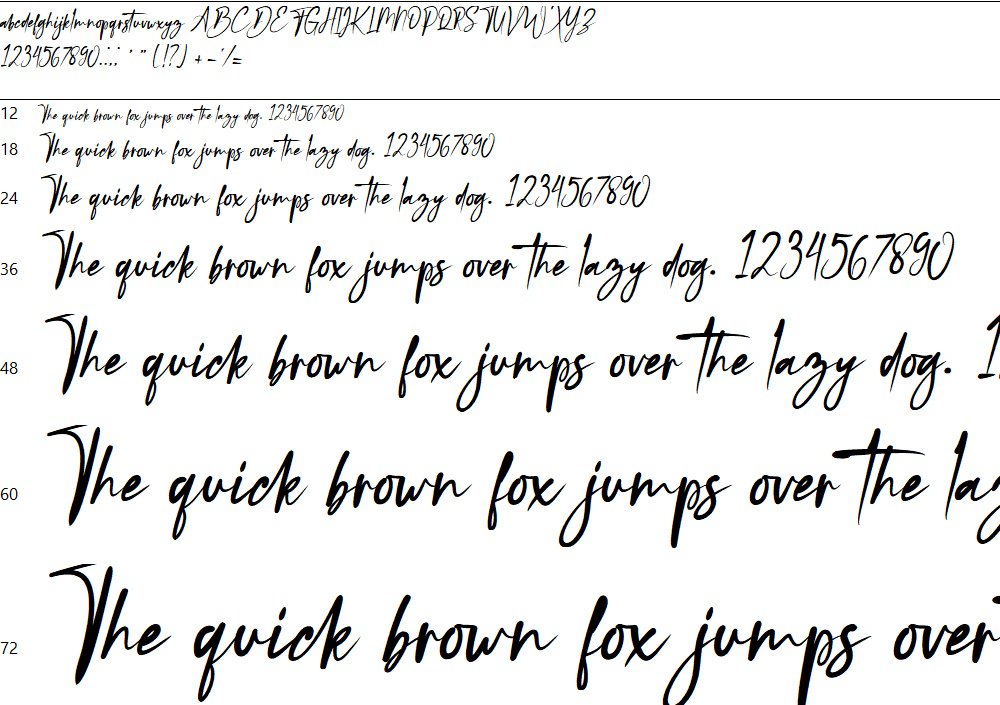 abcdefghijklmnopqrstuvwxyz ABCDEFGHIJKLMNOPQRSTUVWXYZ
1234567890.:,; ' " (!?) + - * / =
12 The quick brown fox jumps over the lazy dog. 1234567890
18 The quick brown fox jumps over the lazy dog. 1234567890
24 The quick brown fox jumps over the lazy dog. 1234567890
36 The quick brown fox jumps over the lazy dog. 1234567890
48 The quick brown fox jumps over the lazy dog. 1
60 The quick brown fox jumps over the laz
72 The quick brown fox jumps over